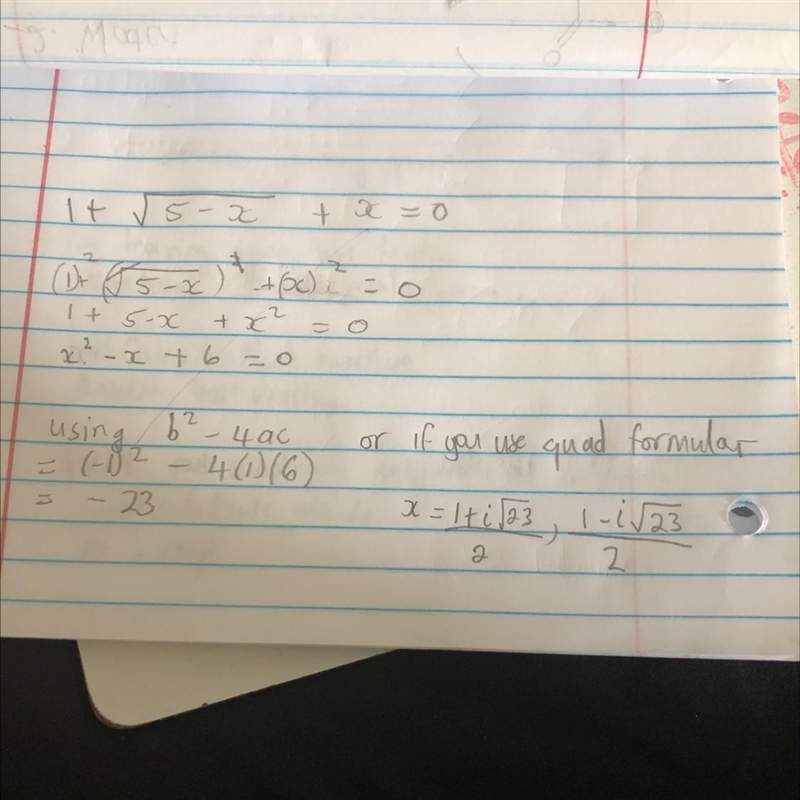 1 + √5-x + x = 0
(1)+² (√5-x)² + (x)² = 0
1 + 5-x + x² = 0
x² - x + 6 = 0
using b² - 4ac or if you use quad formular
= (-1)² - 4(1)(6)
= - 23
x = 1+i√23/2, 1-i√23/2